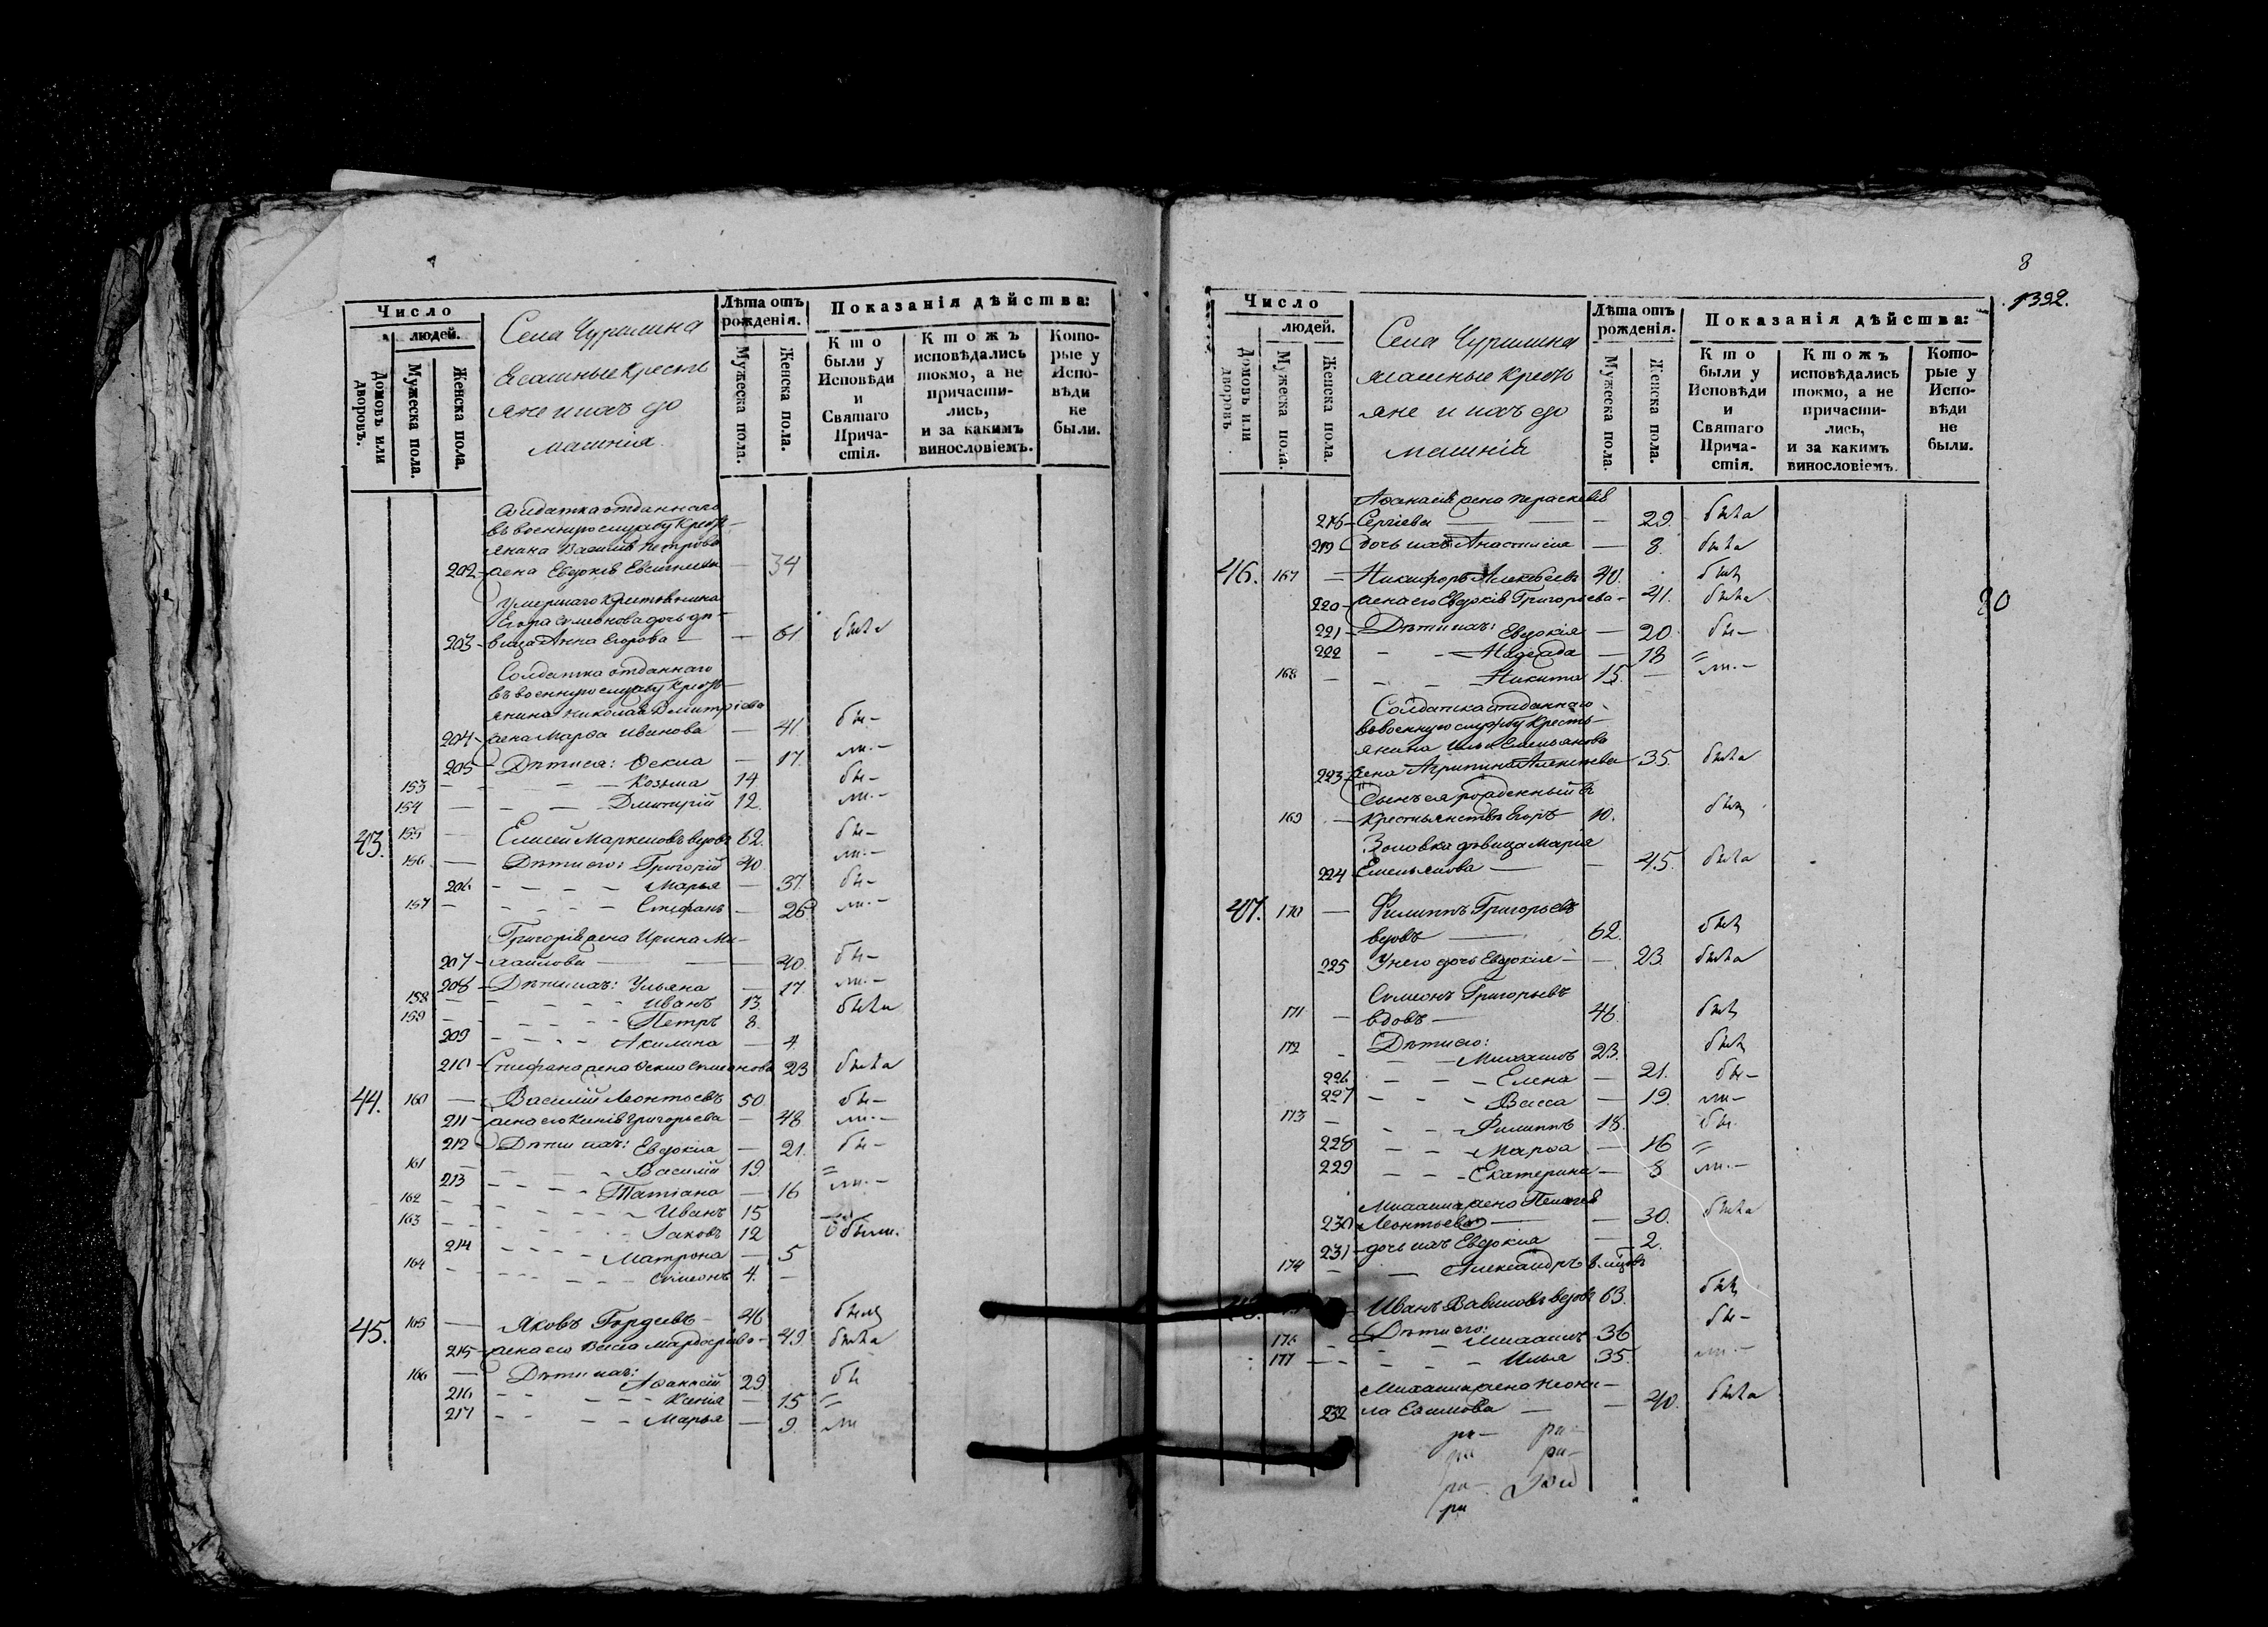 Число
людей.
Домовъ или дворовъ.
Мужеска пола.
Женска пола.
Села Чурилина
Ясашные кресть
яне и ихъ до
машнія.
Лѣта отъ
рожденія.
Мужеска пола.
Женска пола.
Показанія дѣйства:
Кто
были у
Исповѣди
и
Святаго
Прича-
стія.
Ктожъ
исповѣдались
токмо, а не
причасти-
лись,
и за какимъ
винословіемъ.
Кото-
рые у
Испо-
вѣди
не
были.
Солдатка отданнаго
въ военную службу кресть-
янина Василія Петрова
202 жена Евдокія 34
Умершаго крестьянина
Егора Симеонова дочь дѣ-
203 вица Анна Егорова — 61 была
Солдатка отданнаго
въ военную службу кресть-
янина Николая Дмитріева
204 жена Марѳа Иванова — 41 бы-
205 Дѣти ея: Ѳекла — 17. ли.-
153 — Козьма 14 бы-
154 — Дмитрій 12. ли.-
43. 155 — Елисей Маркеловъ вдовъ 62. бы-
156 — Дѣти его: Григорій 40 ли.-
206 Марья — 37. бы-
157 — Стефанъ — 26 ли.-
Григорія жена Ирина Ми-
207 хайлова — 40. бы-
208 Дѣти ихъ: Ульяна — 17. ли.-
158 — Иванъ 13. была
159 — Петръ 8.
209 Акилина — 4.
210 Стефана жена Ѳекла Симеонова 23 была
44. 160 — Василій Леонтьевъ 50 бы-
211 жена его Ксенія Григорьева — 48 ли.-
212 Дѣти ихъ: Евдокиа — 21. бы-
161 — Василій 19. =
213 Татіана — 16 ли.-
162 — Иванъ 15
163 — Іаковъ 12 были.
214 Матрона — 5
164 — Симеонъ 4. —
45. 165 — Яковъ Гордѣевъ 46 былъ
215 жена его Васса — 49. была
166 — Дѣти ихъ: Аѳанасій 29 бы
216 Ксенія — 15 =
217 Марья — 9. ли
8
1392.
Число
людей.
Домовъ или дворовъ.
Мужеска пола.
Женска пола.
Села Чурилина
ясашные кресть
яне и ихъ до
машнія
Лѣта отъ
рожденія.
Мужеска пола.
Женска пола.
Показанія дѣйства:
Кто
были у
Исповѣди
и
Святаго
Прича-
стія.
Ктожъ
исповѣдались
токмо, а не
причасти-
лись,
и за какимъ
винословіемъ.
Кото-
рые у
Испо-
вѣди
не
были.
Аѳанасія жена Параскевія
218 Сергіева — 29. была
219 дочь ихъ Анастасія — 8. была
46. 167 — Никифоръ Алексѣевъ 40. былъ
220 жена его Евдокія Григорьева 41. была
80
221 Дѣти ихъ: Евдокія — 20. бы-
222 Надежда — 18 =
168 — Никита 15. — ли.-
Солдатка отданнаго
въ военную службу кресть-
янина Ильи Емельянова
223 жена Агрипина 35. была
Сынъ ея рожденный в
169 — крестьянствѣ Егоръ 10. былъ
Золовка дѣвица Марія
224 Емельянова — 45. была
47. 170 — Филиппъ Григорьевъ
вдовъ 62. былъ
225 У него дочь Евдокія — 23. была
Симеонъ Григорьевъ
171 — вдовъ 46. былъ
172 Дѣти его:
Михаилъ 23. былъ
226 Елена — 21. бы-
227 Васса — 19. ли-
173 — Филиппъ 18. бы.
228 Марѳа — 16 =
229 Екатерина — 8 ли.-
Михаила жена Пелагея
230 Леонтьева — 30. была
231 дочь ихъ Евдокиа — 2.
174 — Александръ
Иванъ Вавиловъ вдовъ 63. былъ
Дѣти его:
176 Михаилъ 36 бы-
177 Илья 35. ли.-
Михаила жена Неони-
232 ла Ефимова — 40. была